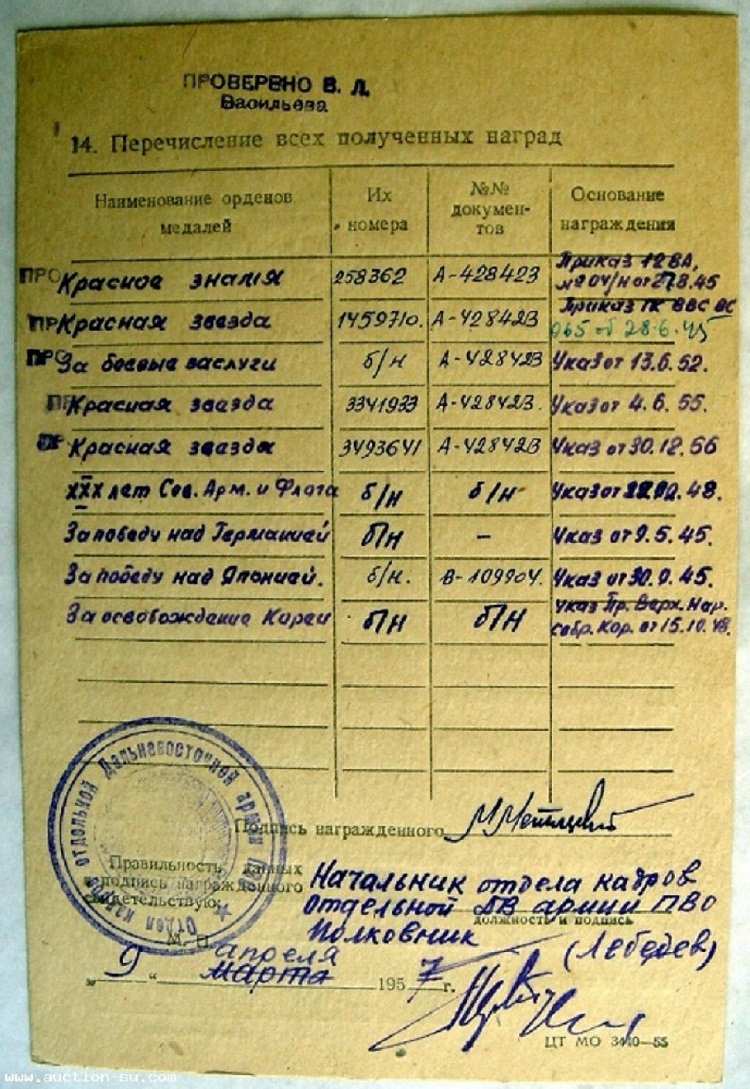 ПРОВЕРЕНО В. Л.
Васильева
14. Перечисление всех полученных наград
Наименование орденов медалей Их номера №№ докумен-тов Основание награждения
ПРО Красное знамя 258362 А-428423 Приказ 12 ВА, №04/н от 27.8.45
ПР Красная звезда 1459710. А-428423 Приказ ГК ВВС ВС 065 от 28.6.45
ПРО За боевые заслуги б/н А-428423 Указ от 13.6.52.
ПР Красная звезда 3341933 А-428423. Указ от 4.6.55.
ПР Красная звезда 3493641 А-428423 Указ от 30.12.56
XXX лет Сов. Арм. и Флота б/н б/н Указ от 48.
За победу над Германией б/н – Указ от 9.5.45.
За победу над Японией. б/н. В-109904. Указ от 30.9.45.
За освобождение Кореи б/н б/н указ Пр. Верх. Нар. собр. Кор. от 15.10.48.
Подпись награжденного
Правильность данных
и подпись награжденного
свидетельствую:
Начальник отдела кадров
отдельной ДВ армии ПВО
должность и подпись
Полковник (Лебедев)
М. П.
апреля
„ 9 “ марта 1957 г.
Отдел кадров отдельной Дальневосточной армии ПВО
ЦТ МО 3440—55
www.auction-su.com